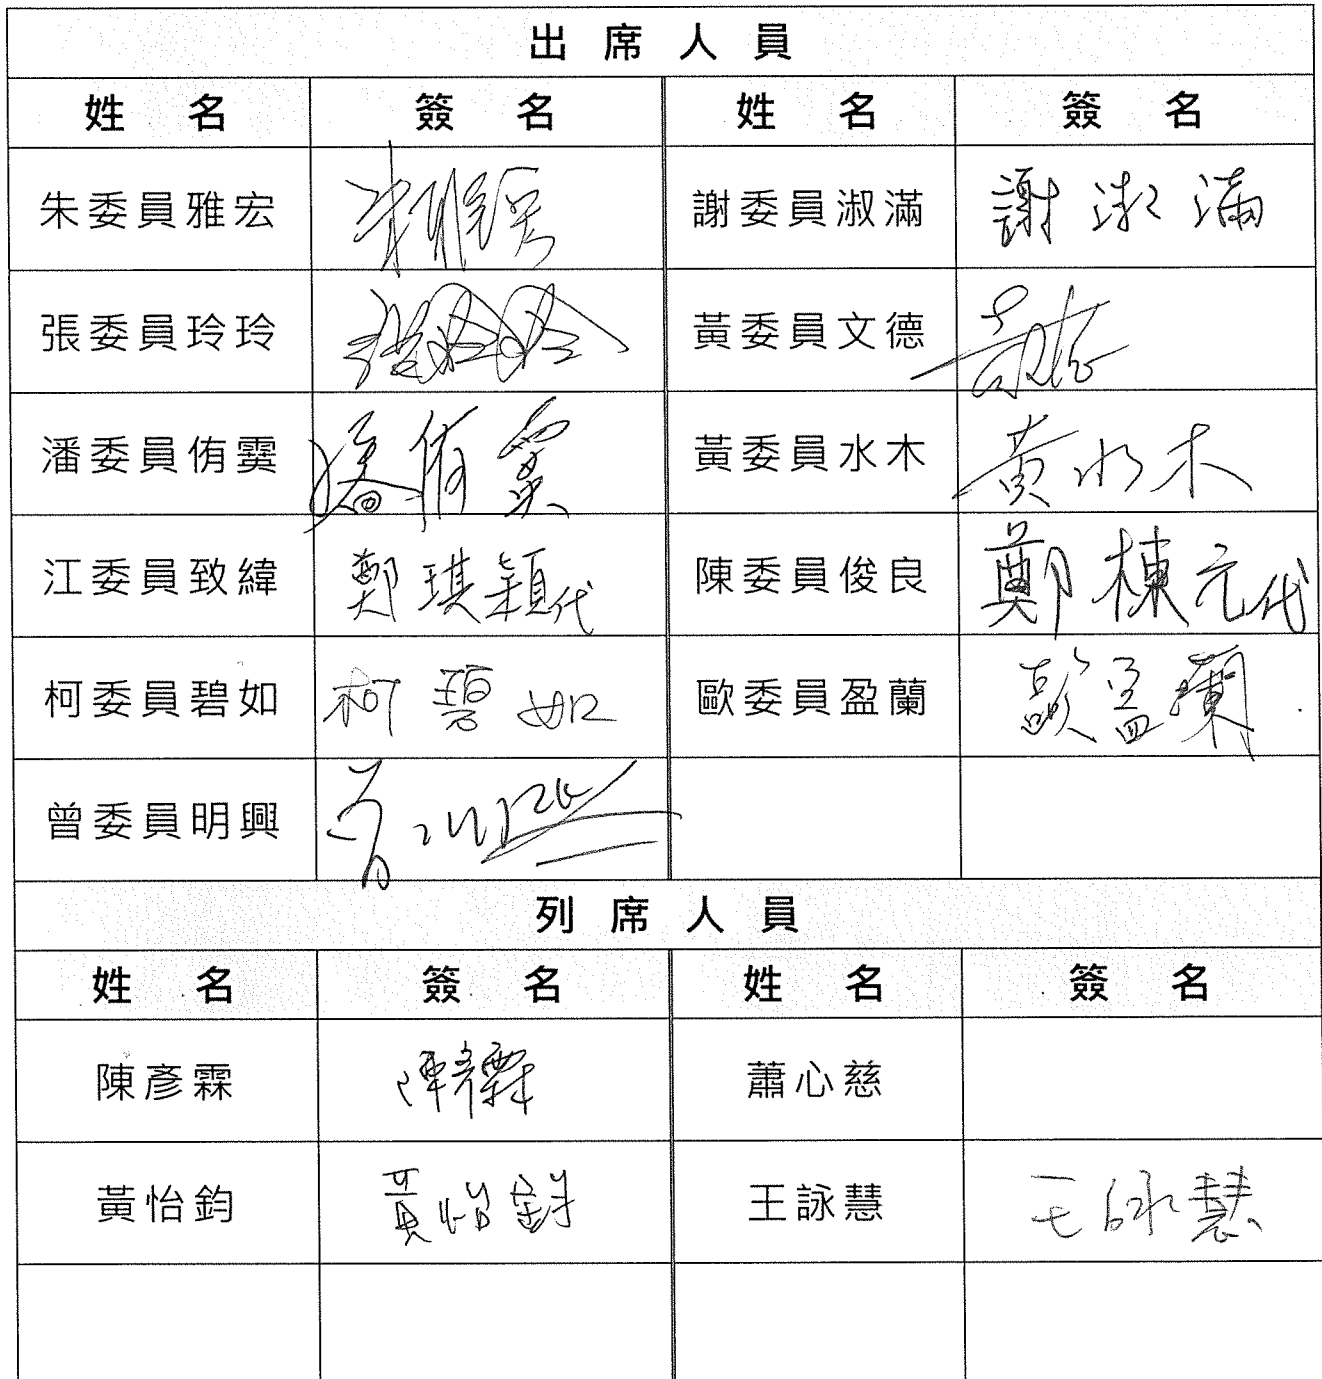 出席人員
姓名 簽名 姓名 簽名
朱委員雅宏 朱雅宏 謝委員淑滿 謝淑滿
張委員玲玲 張玲玲 黃委員文德
潘委員侑霙 潘侑霙 黃委員水木 黃水木
江委員致緯 鄭琪穎代 陳委員俊良 鄭棟元代
柯委員碧如 柯碧如 歐委員盈蘭 歐盈蘭
曾委員明興 曾明興
列席人員
姓名 簽名 姓名 簽名
陳彥霖 陳彥霖 蕭心慈
黃怡鈞 黃怡鈞 王詠慧 王詠慧